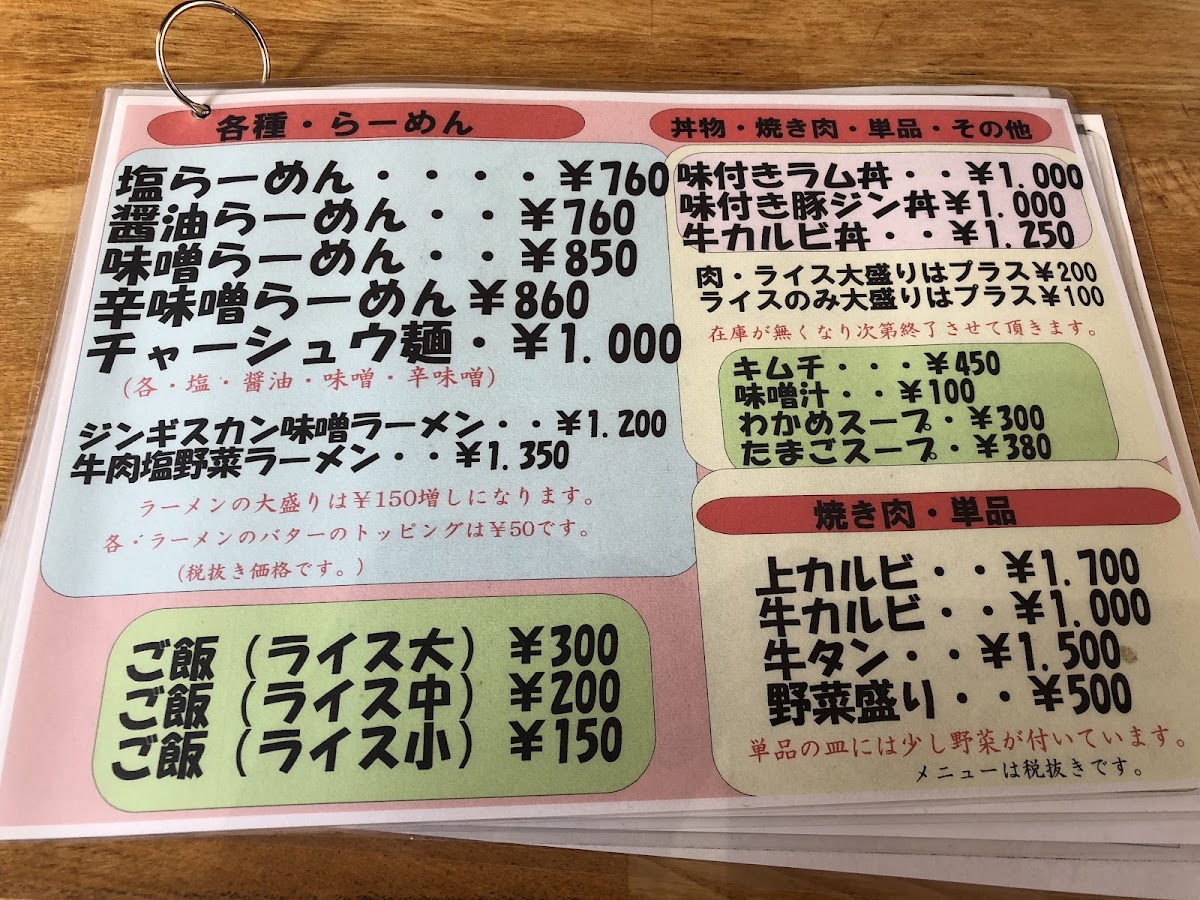 各種・らーめん
塩らーめん・・・・¥760
醤油らーめん・・¥760
味噌らーめん・・¥850
辛味噌らーめん¥860
チャーシュウ麺・¥1.000
(各・塩・醤油・味噌・辛味噌)
ジンギスカン味噌ラーメン・・¥1.200
牛肉塩野菜ラーメン・・¥1.350
ラーメンの大盛りは¥150増しになります。
各・ラーメンのバターのトッピングは¥50です。
(税抜き価格です。)
ご飯(ライス大)¥300
ご飯(ライス中)¥200
ご飯(ライス小)¥150
丼物・焼き肉・単品・その他
味付きラム丼・・¥1.000
味付き豚ジン丼¥1.000
牛カルビ丼・・¥1.250
肉・ライス大盛りはプラス¥200
ライスのみ大盛りはプラス¥100
在庫が無くなり次第終了させて頂きます。
キムチ・・・¥450
味噌汁・・¥100
わかめスープ・¥300
たまごスープ・¥380
焼き肉・単品
上カルビ・・¥1.700
牛カルビ・・¥1.000
牛タン・・¥1.500
野菜盛り・・¥500
単品の皿には少し野菜が付いています。
メニューは税抜きです。